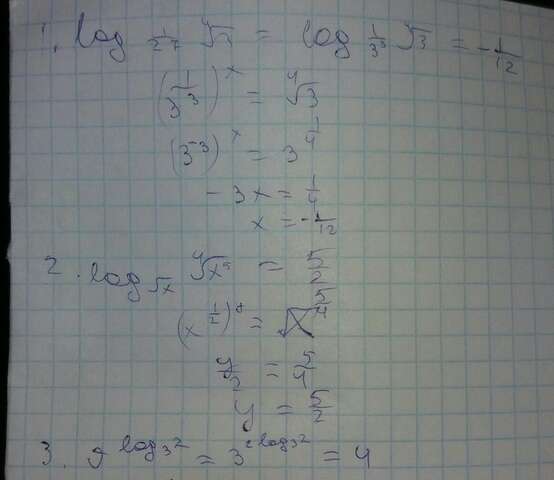 1. log 1/27 ∜3 = log 1/3³ ∜3 = -1/12
(1/3³)ˣ = ∜3
(3⁻³)ˣ = 3^(1/4)
-3x = 1/4
x = -1/12
2. log √x ∜x⁵ = 5/2
(x^(1/2))^y = x^(5/4)
y/2 = 5/4
y = 5/2
3. 9^(log₃2) = 3^(2log₃2) = 4